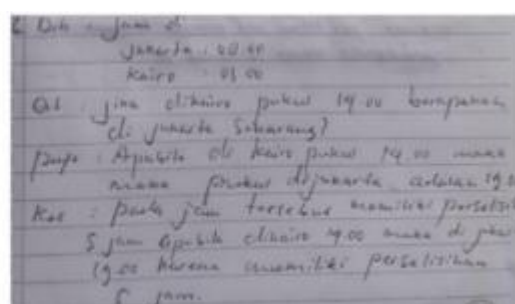 2. Dik : jam di
Jakarta : 08.00
Kairo : 03.00
Dit : jika dikairo pukul 14.00 berapakah
di jakarta Sekarang?
: Apabila di kairo pukul 14.00 maka
maka pukul dijakarta adalah 19.0
Kes : pada jam tersebut memiliki perselisi
5 jam apabila dikairo 14.00 maka di
19.00 karena memiliki perselisihan
5 jam.